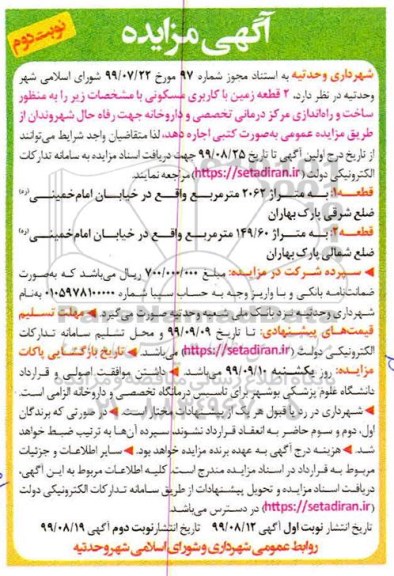 آگهی مزایده
نوبت دوم
شهرداری وحدتیه به استناد مجوز شماره ۹۷ مورخ ۹۹/۰۷/۲۲ شورای اسلامی شهر
وحدتیه در نظر دارد، ۲ قطعه زمین با کاربری مسکونی با مشخصات زیر را به منظور
ساخت و راه‌اندازی مرکز درمانی تخصصی و داروخانه جهت رفاه حال شهروندان از
طریق مزایده عمومی به‌صورت کتبی اجاره دهد، لذا متقاضیان واجد شرایط می‌توانند
از تاریخ درج اولین آگهی تا تاریخ ۹۹/۰۸/۲۵ جهت دریافت اسناد مزایده به سامانه تدارکات
الکترونیکی دولت (https://setadiran.ir) مراجعه نمایند.
قطعه۱: به متراژ ۲۰۶۲ مترمربع واقع در خیابان امام‌خمینی(ره)
ضلع شرقی پارک بهاران
قطعه۲: به متراژ ۱۴۹/۶۰ مترمربع واقع در خیابان امام‌خمینی(ره)
ضلع شمالی پارک بهاران
◄ سپرده شرکت در مزایده: مبلغ ۷۰۰/۰۰۰/۰۰۰ ریال می‌باشد که به‌صورت
ضمانت‌نامه بانکی و یا واریز وجه به حساب سیبا شماره ۰۱۰۵۹۷۸۱۰۰۰۰۰ به‌نام
شهرداری وحدتیه نزد بانک ملی شعبه وحدتیه صورت می‌گیرد. ◄ مهلت تسلیم
قیمت‌های پیشنهادی: تا تاریخ ۹۹/۰۹/۰۹ و محل تسلیم سامانه تدارکات
الکترونیکی دولت (https://setadiran.ir) می‌باشد. ◄ تاریخ بازگشایی پاکات
مزایده: روز یکشنبه ۹۹/۰۹/۱۰ می‌باشد. ◄ داشتن موافقت اصولی و قرارداد
دانشگاه علوم پزشکی بوشهر برای تأسیس درمانگاه تخصصی و داروخانه الزامی است.
◄ شهرداری در رد یا قبول هر یک از پیشنهادات مختار است. ◄ در صورتی که برندگان
اول، دوم و سوم حاضر به انعقاد قرارداد نشوند، سپرده آن‌ها به ترتیب ضبط خواهد
شد. ◄ هزینه درج آگهی به عهده برنده مزایده خواهد بود. ◄ سایر اطلاعات و جزئیات
مربوط به قرارداد در اسناد مزایده مندرج است. کلیه اطلاعات مربوط به این آگهی،
دریافت اسناد مزایده و تحویل پیشنهادات از طریق سامانه تدارکات الکترونیکی دولت
(https://setadiran.ir) در دسترس می‌باشد.
تاریخ انتشار نوبت اول آگهی ۹۹/۰۸/۱۲ تاریخ انتشار نوبت دوم آگهی ۹۹/۰۸/۱۹
روابط عمومی شهرداری و شورای اسلامی شهر وحدتیه